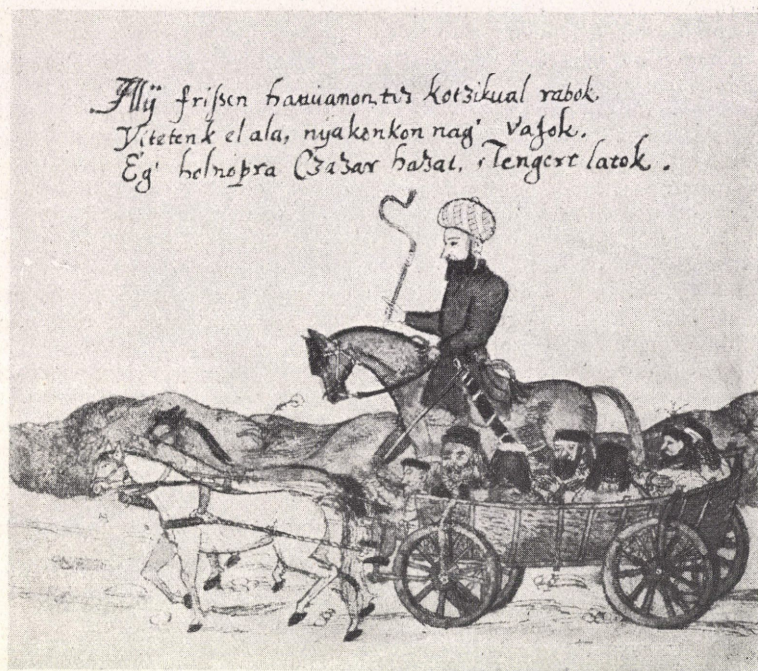 Illÿ frißen hatuanon tis kotzikual rabok.
Vitetenk el ala, nyakonkon nag' vasok.
Eg' holnopra Czazar hazat, Tengert latok.